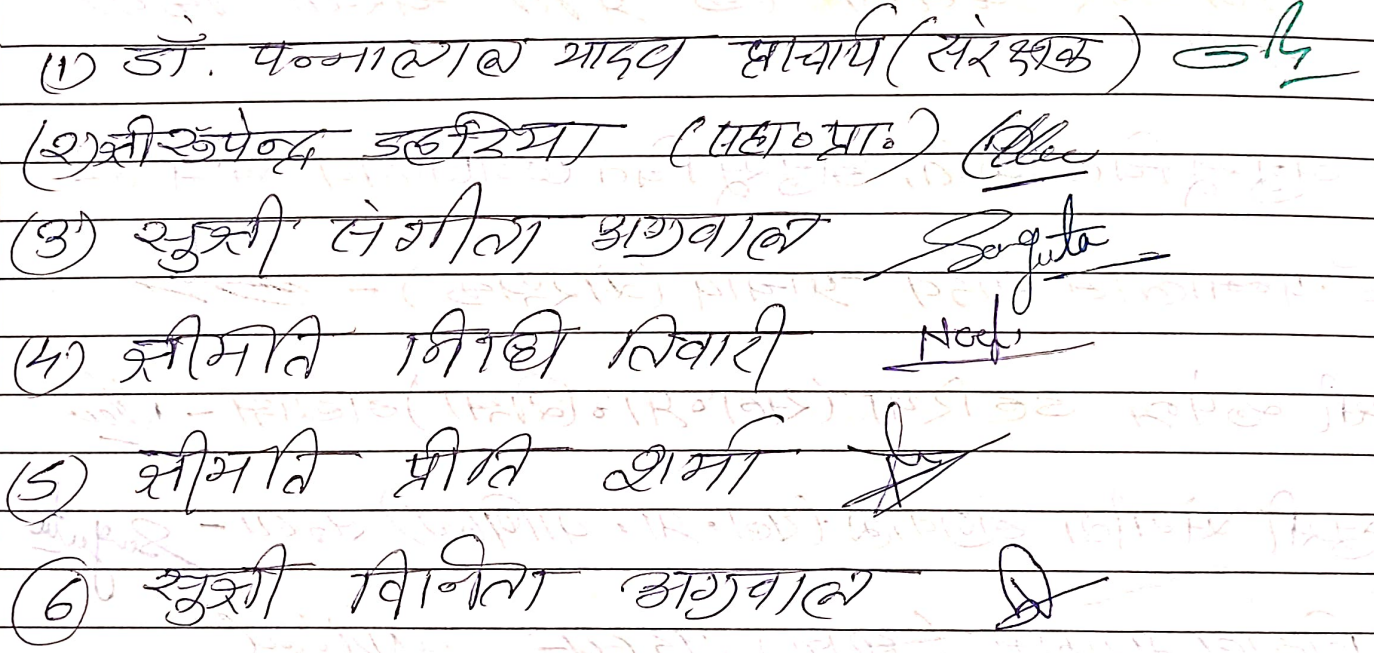 (1) डॉ. पन्नालाल यादव प्राचार्य (संरक्षक)
(2) श्री रूपेन्द्र डहरिया (सहा॰ प्रा॰)
(3) सुश्री संगीता अग्रवाल Sangita
(4) श्रीमति निधि तिवारी
(5) श्रीमति प्रीति शर्मा
(6) सुश्री विनिता अग्रवाल